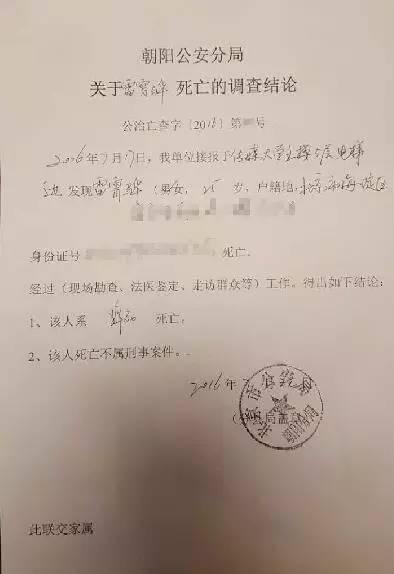 朝阳公安分局
关于雷宵 死亡的调查结论
公治亡查字〔2016〕第 号
2016年7月7日, 我单位接报于传媒大学主楼 层电梯
发现雷宵 (男女, 25 岁, 户籍地: 北京市海淀区
身份证号 死亡.
经过(现场勘查、法医鉴定、走访群众等)工作, 得出如下结论:
1、该人系 死亡.
2、该人死亡不属刑事案件.
2016年
局盖
此联交家属